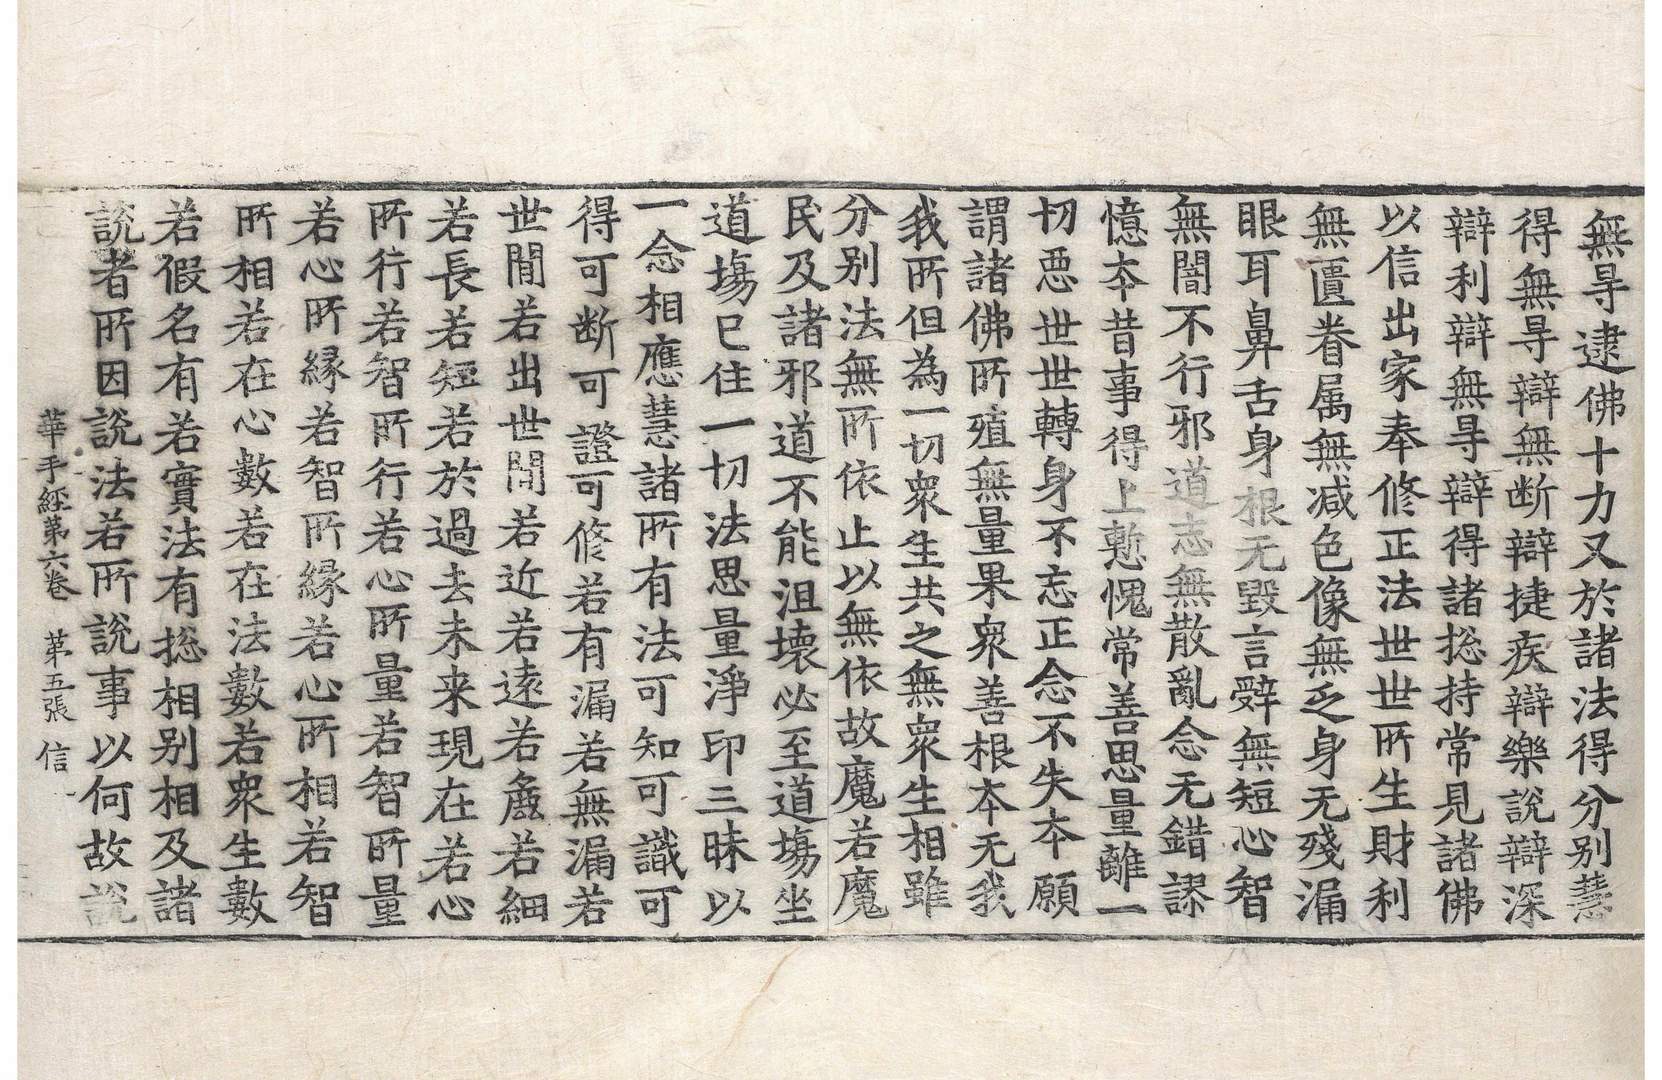 無㝵逮佛十力又於諸法得分别慧
得無㝵辯無断辯捷疾辯樂說辯深
辯利辯無㝵辯得諸揔持常見諸佛
以信出家奉修正法世世所生財利
無匱眷属無减色像無乏身无殘漏
眼耳鼻舌身根无毀言辭無短心智
無闇不行邪道志無散亂念无錯謬
憶夲昔事得上慙愧常善思量離一
切惡世世轉身不忘正念不失夲願
謂諸佛所殖無量果衆善根夲无我
我所但為一切衆生共之無衆生相雖
分别法無所依止以無依故魔若魔
民及諸邪道不能沮壞必至道塲坐
道塲已住一切法思量淨印三昧以
一念相應慧諸所有法可知可識可
得可断可證可修若有漏若無漏若
世間若出世間若近若遠若麁若細
若長若短若於過去未来現在若心
所行若智所行若心所量若智所量
若心所緣若智所緣若心所相若智
所相若在心數若在法數若衆生數
若假名有若實法有揔相别相及諸
說者所因說法若所說事以何故說
華手經第六卷 第五張 信